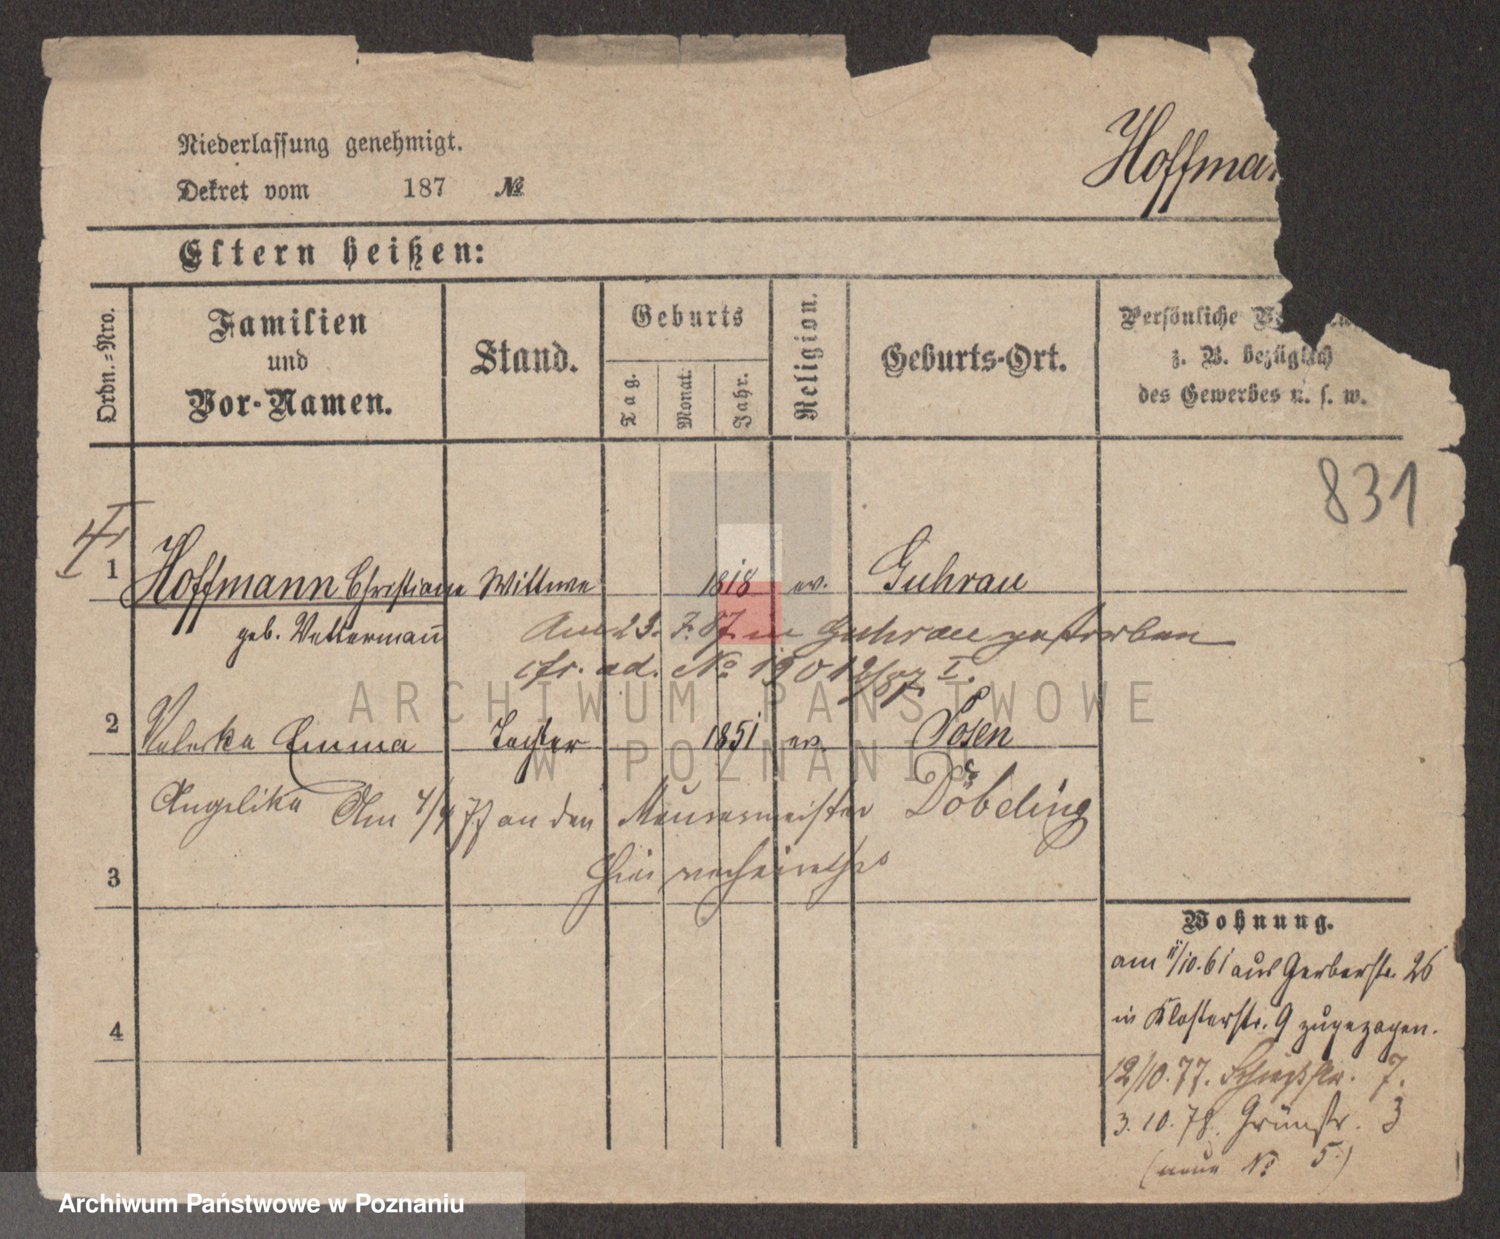 Niederlassung genehmigt.
Dekret vom 187 №
Hoffma
Eltern heißen:
Ordn.=Nro.
Familien
und
Vor-Namen.
Stand.
Geburts
Tag.
Monat.
Jahr.
Religion.
Geburts-Ort.
Persönliche
z. B. bezüglich
des Gewerbes u. s. w.
831
1 Hoffmann Christiane Wittwe 1818 ev. Guhrau
geb. Vettermann
Am 23. 7. 87. in Guhrau gestorben
cfr. ad. No I.
2 Valeska Emma Tochter 1851 ev. Posen
Angelika Am an den Maurermeister Döbeling
hier verheirathet
3
4
Wohnung.
am 11/10. 61 aus Gerberstr. 26
in Klosterstr. 9 zugezogen.
12/10. 77. Schießstr. 7.
3. 10. 78. Grünstr. 3
(neue № 5.)
ARCHIWUM PAŃSTWOWE
W POZNANIU
Archiwum Państwowe w Poznaniu